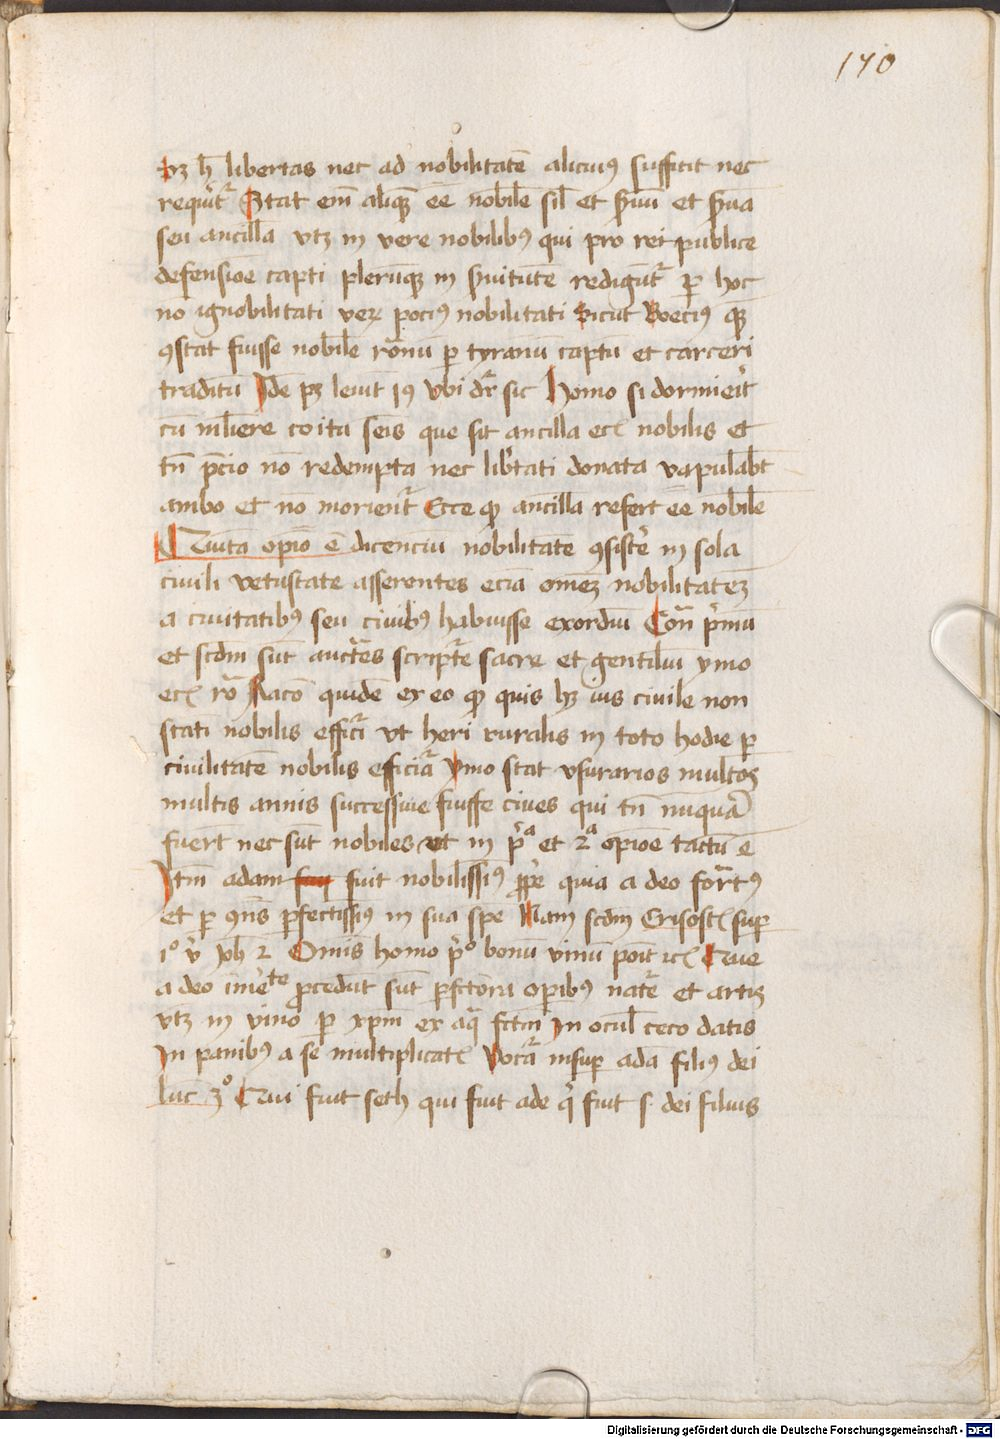 170
tꝫ hͦ libertas nec ad nobilitatē alicuiꝯ sufficit nec
requirit᷑ Stat em̄ aliqueꝫ eē nobilē sil̄ et ẜuū et ẜua
seu ancilla vtꝫ in vere nobilibꝯ qui pro rei publice
defensiōe capti plerūqꝫ in ẜuitutē redigūt᷑ ꝑ hoc
nō ignobilitati verꝝ pociꝯ nobilitati Sicut Boeciꝯ queꝫ
ꝯstat fuisse nobilē romanū ꝑ tyranū captū et carceri
traditū Idē pꝫ leuit 19 vbi dr̄ sic Homo si dormierit
cū muliere coitu semīs que sit ancilla ecī nobilis et
tn̄ p̄cio nō redempta nec lib̄tati donata vapulabūt
ambo et nō morient᷑ Ecce ꝙ ancilla refert᷑ eē nobilē
Quīta opīo ē dicenciū nobilitatē ꝯsistē in sola
ciuili vetustate asserentes eciā omēꝫ nobilitateꝫ
a ciuitatibꝯ seu ciuibꝯ habuisse exordiū Cōn p̄mū
et scd̄m sūt auct̄es script᷑e sacre et gentiliū ymo
ecī rō Racō quidē ex eo ꝙ quis hꝫ ius ciuile non
stati nobilis efficit᷑ vt heri ruralis in toto hodie ꝑ
ciuilitatē nobilis efficiat᷑ ymo stat vsurarios multos
multis annis successiue fuisse ciues qui tn̄ nūquā
fuer̄t nec sūt nobiles vt in p̄ᵃ et 2ᵃ opiōe tactū ē
Itm̄ adam fuit nobilissimꝯ ꝓpē quia a deo format᷑ꝯ
et ꝑ ꝯn̄s ꝑfectissimꝯ in sua spē Nam scd̄m Crisost̄ suꝑ
1º v̄ Joh̄ 2 Omīs homo p̄º bonū vinū poīt ecī Que
a deo īmēᵗᵉ ꝓcedūt sūt ꝑfectiora oꝑibꝯ nat᷑e et artis
vtꝫ in vino ꝑ xp̄m ex aq̄ fc̄m In ocul̄ ceco datis
In panibꝯ a sē multiplicat̄ Vocat᷑ insuꝑ adā filiꝯ dei
luc̄ 3º Qui fuit seth qui fuit ade q̄ fuit s. dei filius
Digitalisierung gefördert durch die Deutsche Forschungsgemeinschaft - DFG